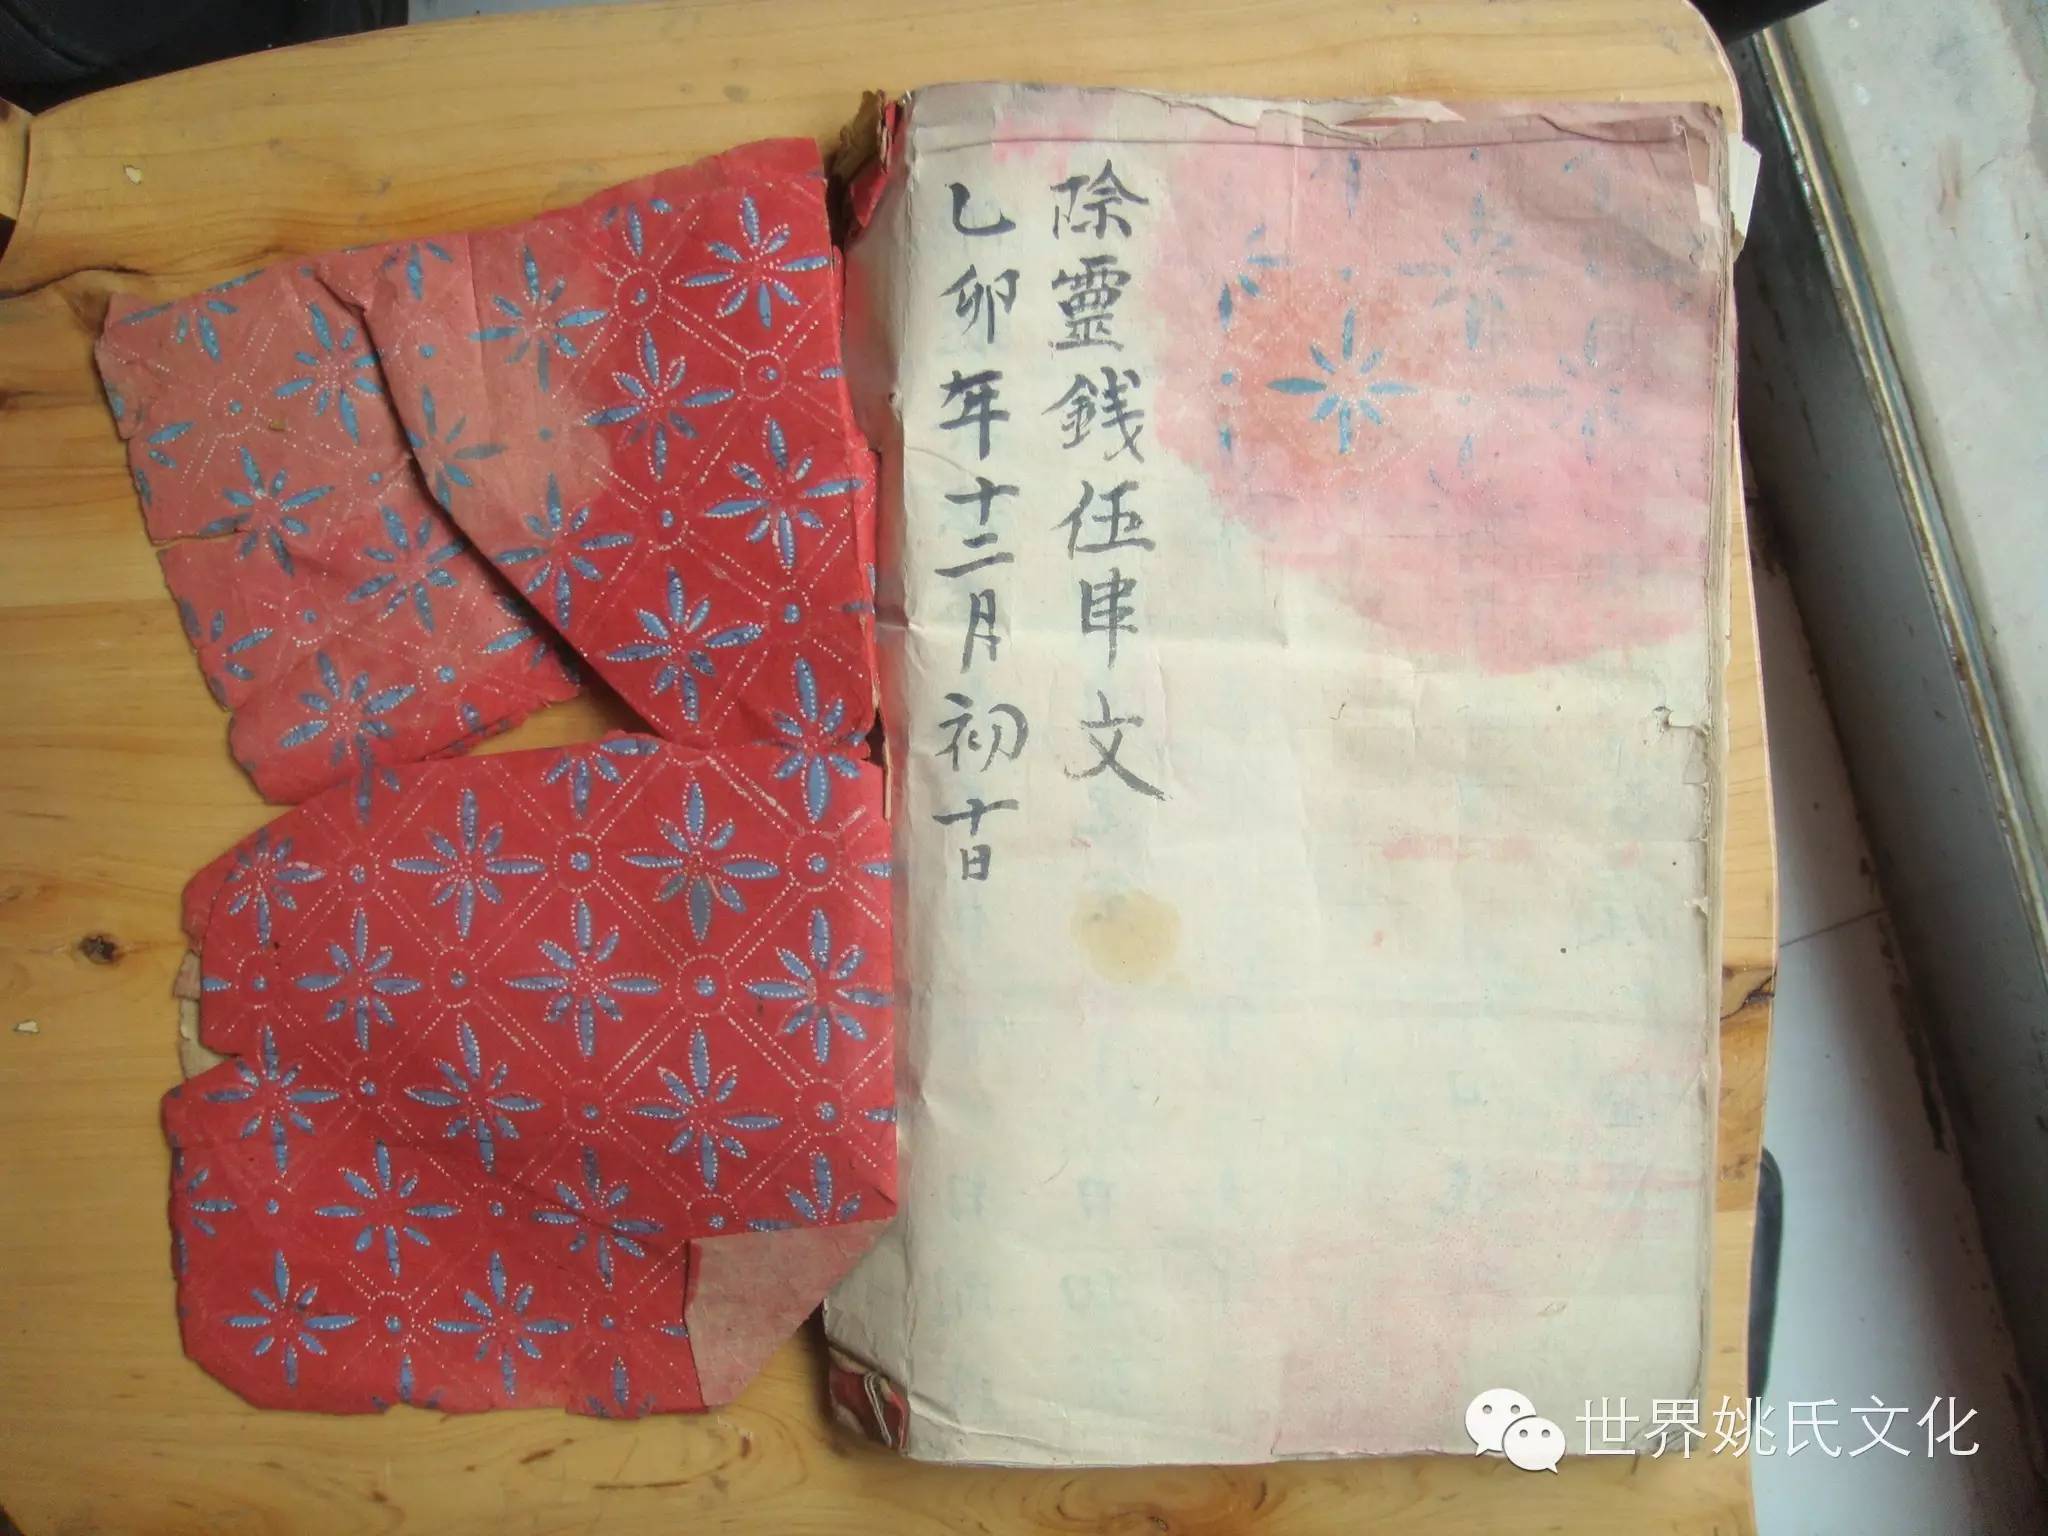 除靈銭伍串文
乙卯年十二月初十日
世界姚氏文化